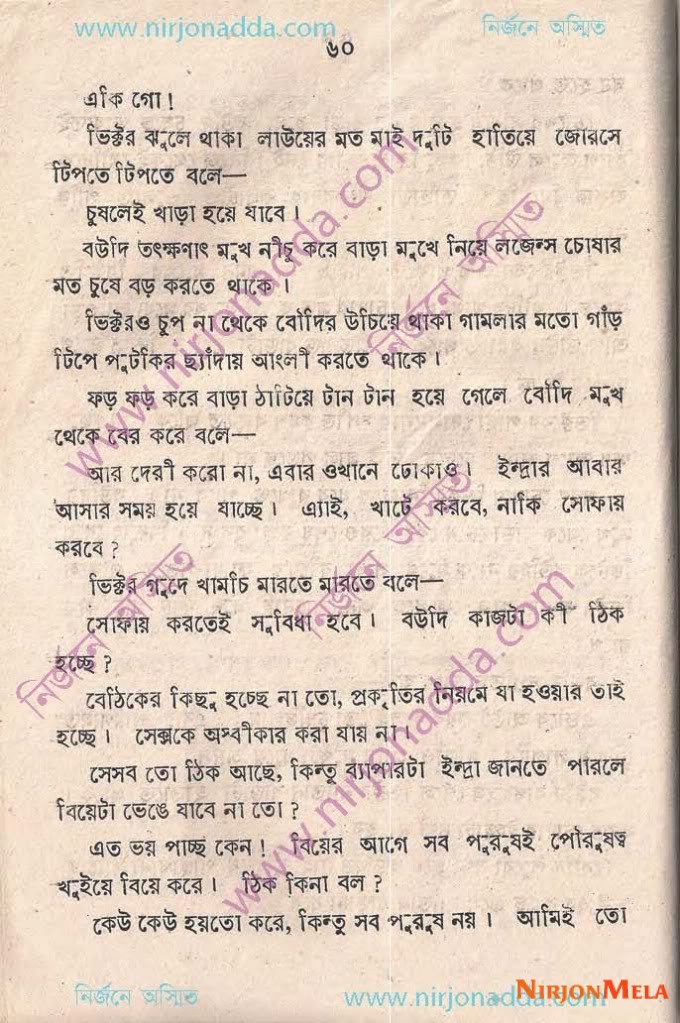 www.nirjonadda.com নির্জনে অস্মিত
৬০
একি গো!
ভিক্টর ঝুলে থাকা লাউয়ের মত মাই দুটি হাতিয়ে জোরসে
টিপতে টিপতে বলে—
চুষলেই খাড়া হয়ে যাবে।
বউদি তৎক্ষণাৎ মুখ নীচু করে বাড়া মুখে নিয়ে লজেন্স চোষার
মত চুষে বড় করতে থাকে।
ভিক্টরও চুপ না থেকে বৌদির উচিয়ে থাকা গামলার মতো গাঁড়
টিপে পুটকির ছ্যাঁদায় আংলী করতে থাকে।
ফড় ফড় করে বাড়া ঠাটিয়ে টান টান হয়ে গেলে বৌদি মুখ
থেকে বের করে বলে—
আর দেরী করো না, এবার ওখানে ঢোকাও। ইন্দ্রার আবার
আসার সময় হয়ে যাচ্ছে। এ্যাই, খাটে করবে, নাকি সোফায়
করবে?
ভিক্টর গুদে খামচি মারতে মারতে বলে—
সোফায় করতেই সুবিধা হবে। বউদি কাজটা কী ঠিক
হচ্ছে?
বেঠিকের কিছু হচ্ছে না তো, প্রকৃতির নিয়মে যা হওয়ার তাই
হচ্ছে। সেক্সকে অস্বীকার করা যায় না।
সেসব তো ঠিক আছে, কিন্তু ব্যাপারটা ইন্দ্রা জানতে পারলে
বিয়েটা ভেঙে যাবে না তো?
এত ভয় পাচ্ছ কেন! বিয়ের আগে সব পুরুষই পৌরুষত্ব
খুইয়ে বিয়ে করে। ঠিক কিনা বল?
কেউ কেউ হয়তো করে, কিন্তু সব পুরুষ নয়। আমিই তো
নির্জনে অস্মিত www.nirjonadda.com
NIRJONMELA
www.nirjonadda.com
নির্জনে অস্মিত
নির্জনে অস্মিত
নির্জনে অস্মিত
www.nirjonadda.com